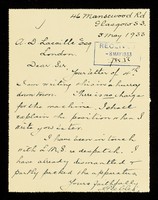 46 Mansewood Rd
Glasgow S.3.
3 May 1933
A. D. Lacaille Esq
London.
Dear Sir,
Your letter of
I am writing this in a hurry
down town. There is no charge
for the machine. I shall
explain the position when I
write you later.
I have been in touch
with L.M.S. re despatch. I
have already dismantled &
partly packed the apparatus
Yours faithfully